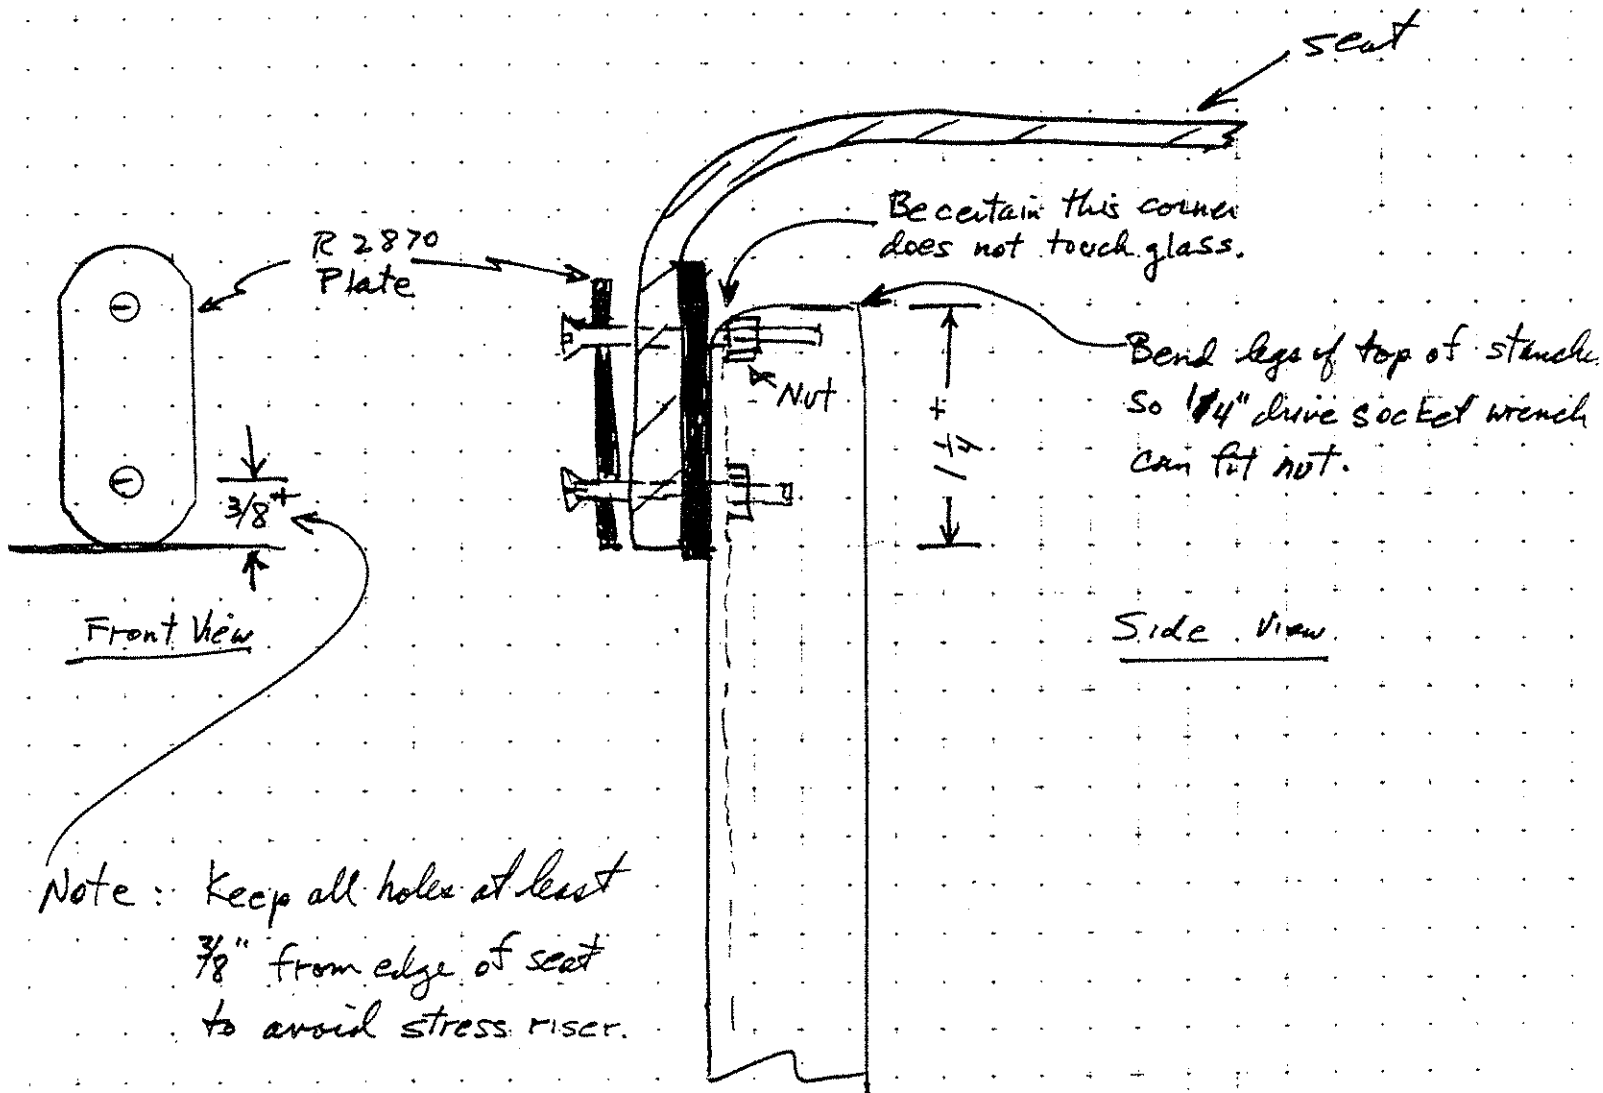 seat
Be certain this corner
does not touch glass.
R 2870
Plate
Bend legs of top of stanch
so 1/4" drive socket wrench
can fit nut.
Nut
1 1/4 +
3/8 +
Front View
Side View
Note: Keep all holes at least
3/8" from edge of seat
to avoid stress riser.